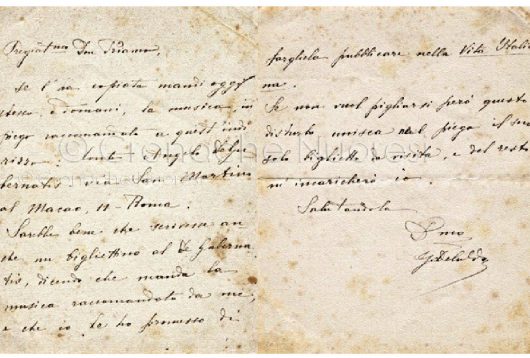 Pregiatmo Don Priamo,
Se l'ha copiata mandi oggi
stesso o domani, la musica in
piego raccomandato a quest'indi
rizzo. Conte Angelo De Gu
bernatis via San Martino
al Macao, 11 Roma.
Sarebbe bene che scrivesse an
che un bigliettino al De Guberna
tis, dicendo che manda la
musica raccomandata da me,
e che io le ho promesso di
farghela pubblicare nella Vita Italia
na.
Se non vuol pigliarsi però questo
disturbo unisca nel piego il suo
solo biglietto da visita, e del resto
m'incaricherò io.
Salutandola
Dmo
G Deledda
© Cronache Nuoresi